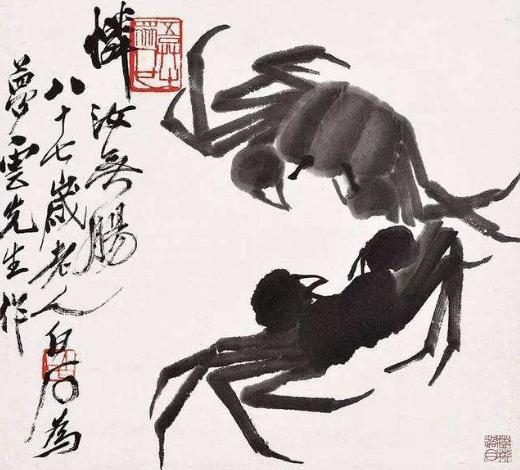 憐汝無腸
八十七歲老人白石為
夢雲先生作